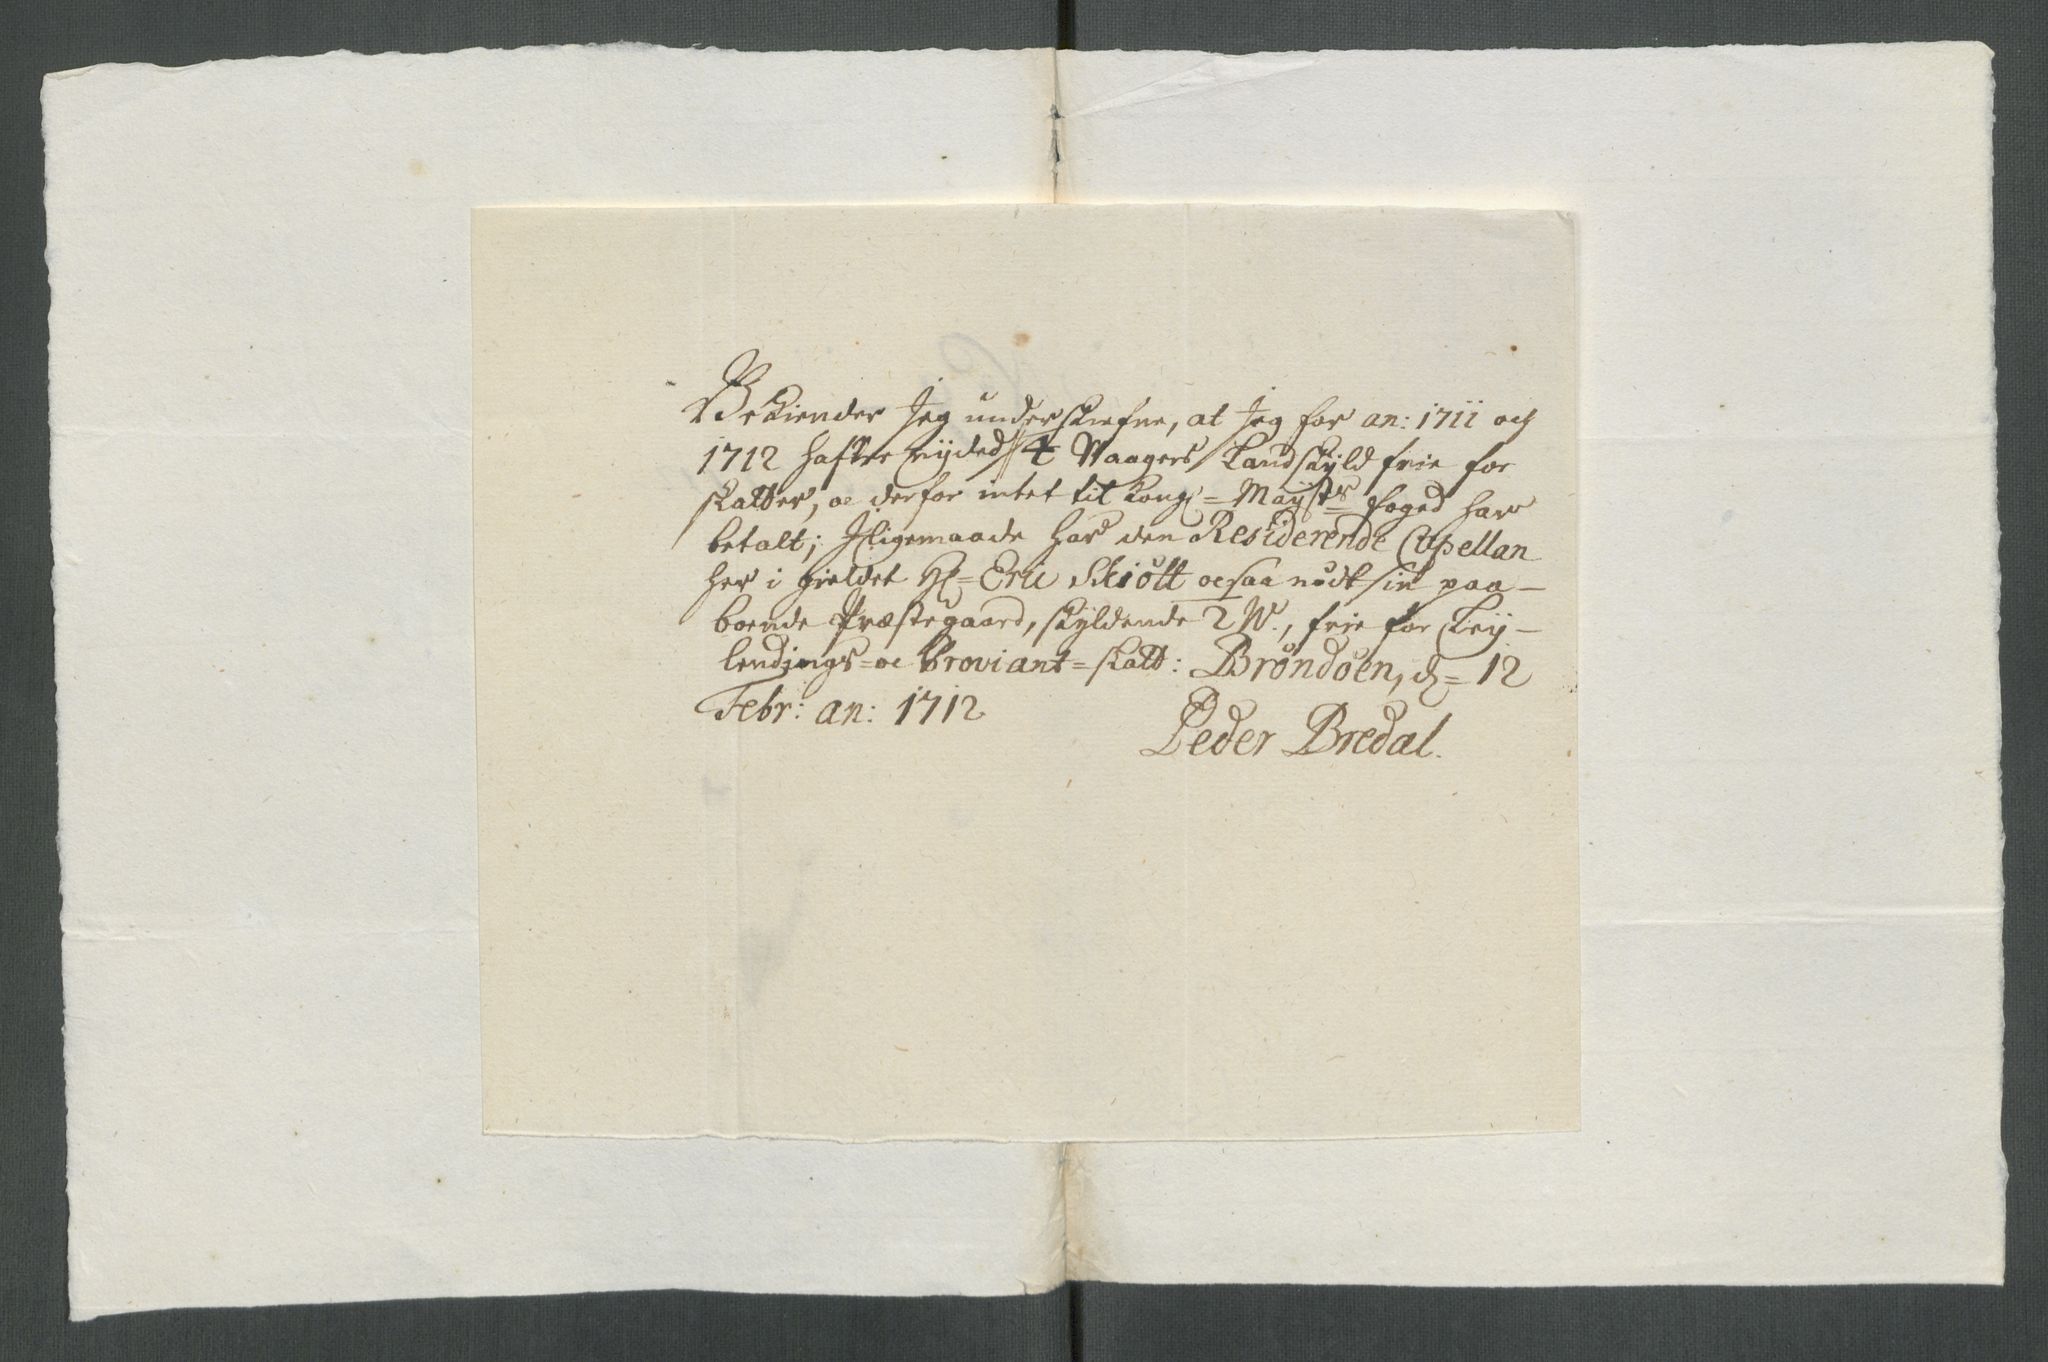 Bekiender Jeg underskrefne, at Jeg for an: 1711 och
1712 hafver nÿded 4 Waagers Landskÿld frie for
skatter, oc derfor intet til Kongl= Maÿsts= foged har
betalt; Jligemaade har den Residerende Capellan
her i gieldet Hr= Eric Schiøtt ocsaa nødt sin paa-
boende Præstegaard, skÿldende 2 W., frie for Leÿ-
lendings= oc Proviant=skatt: Brøndøen, d= 12
Febr: an: 1712
Peder Bredal.